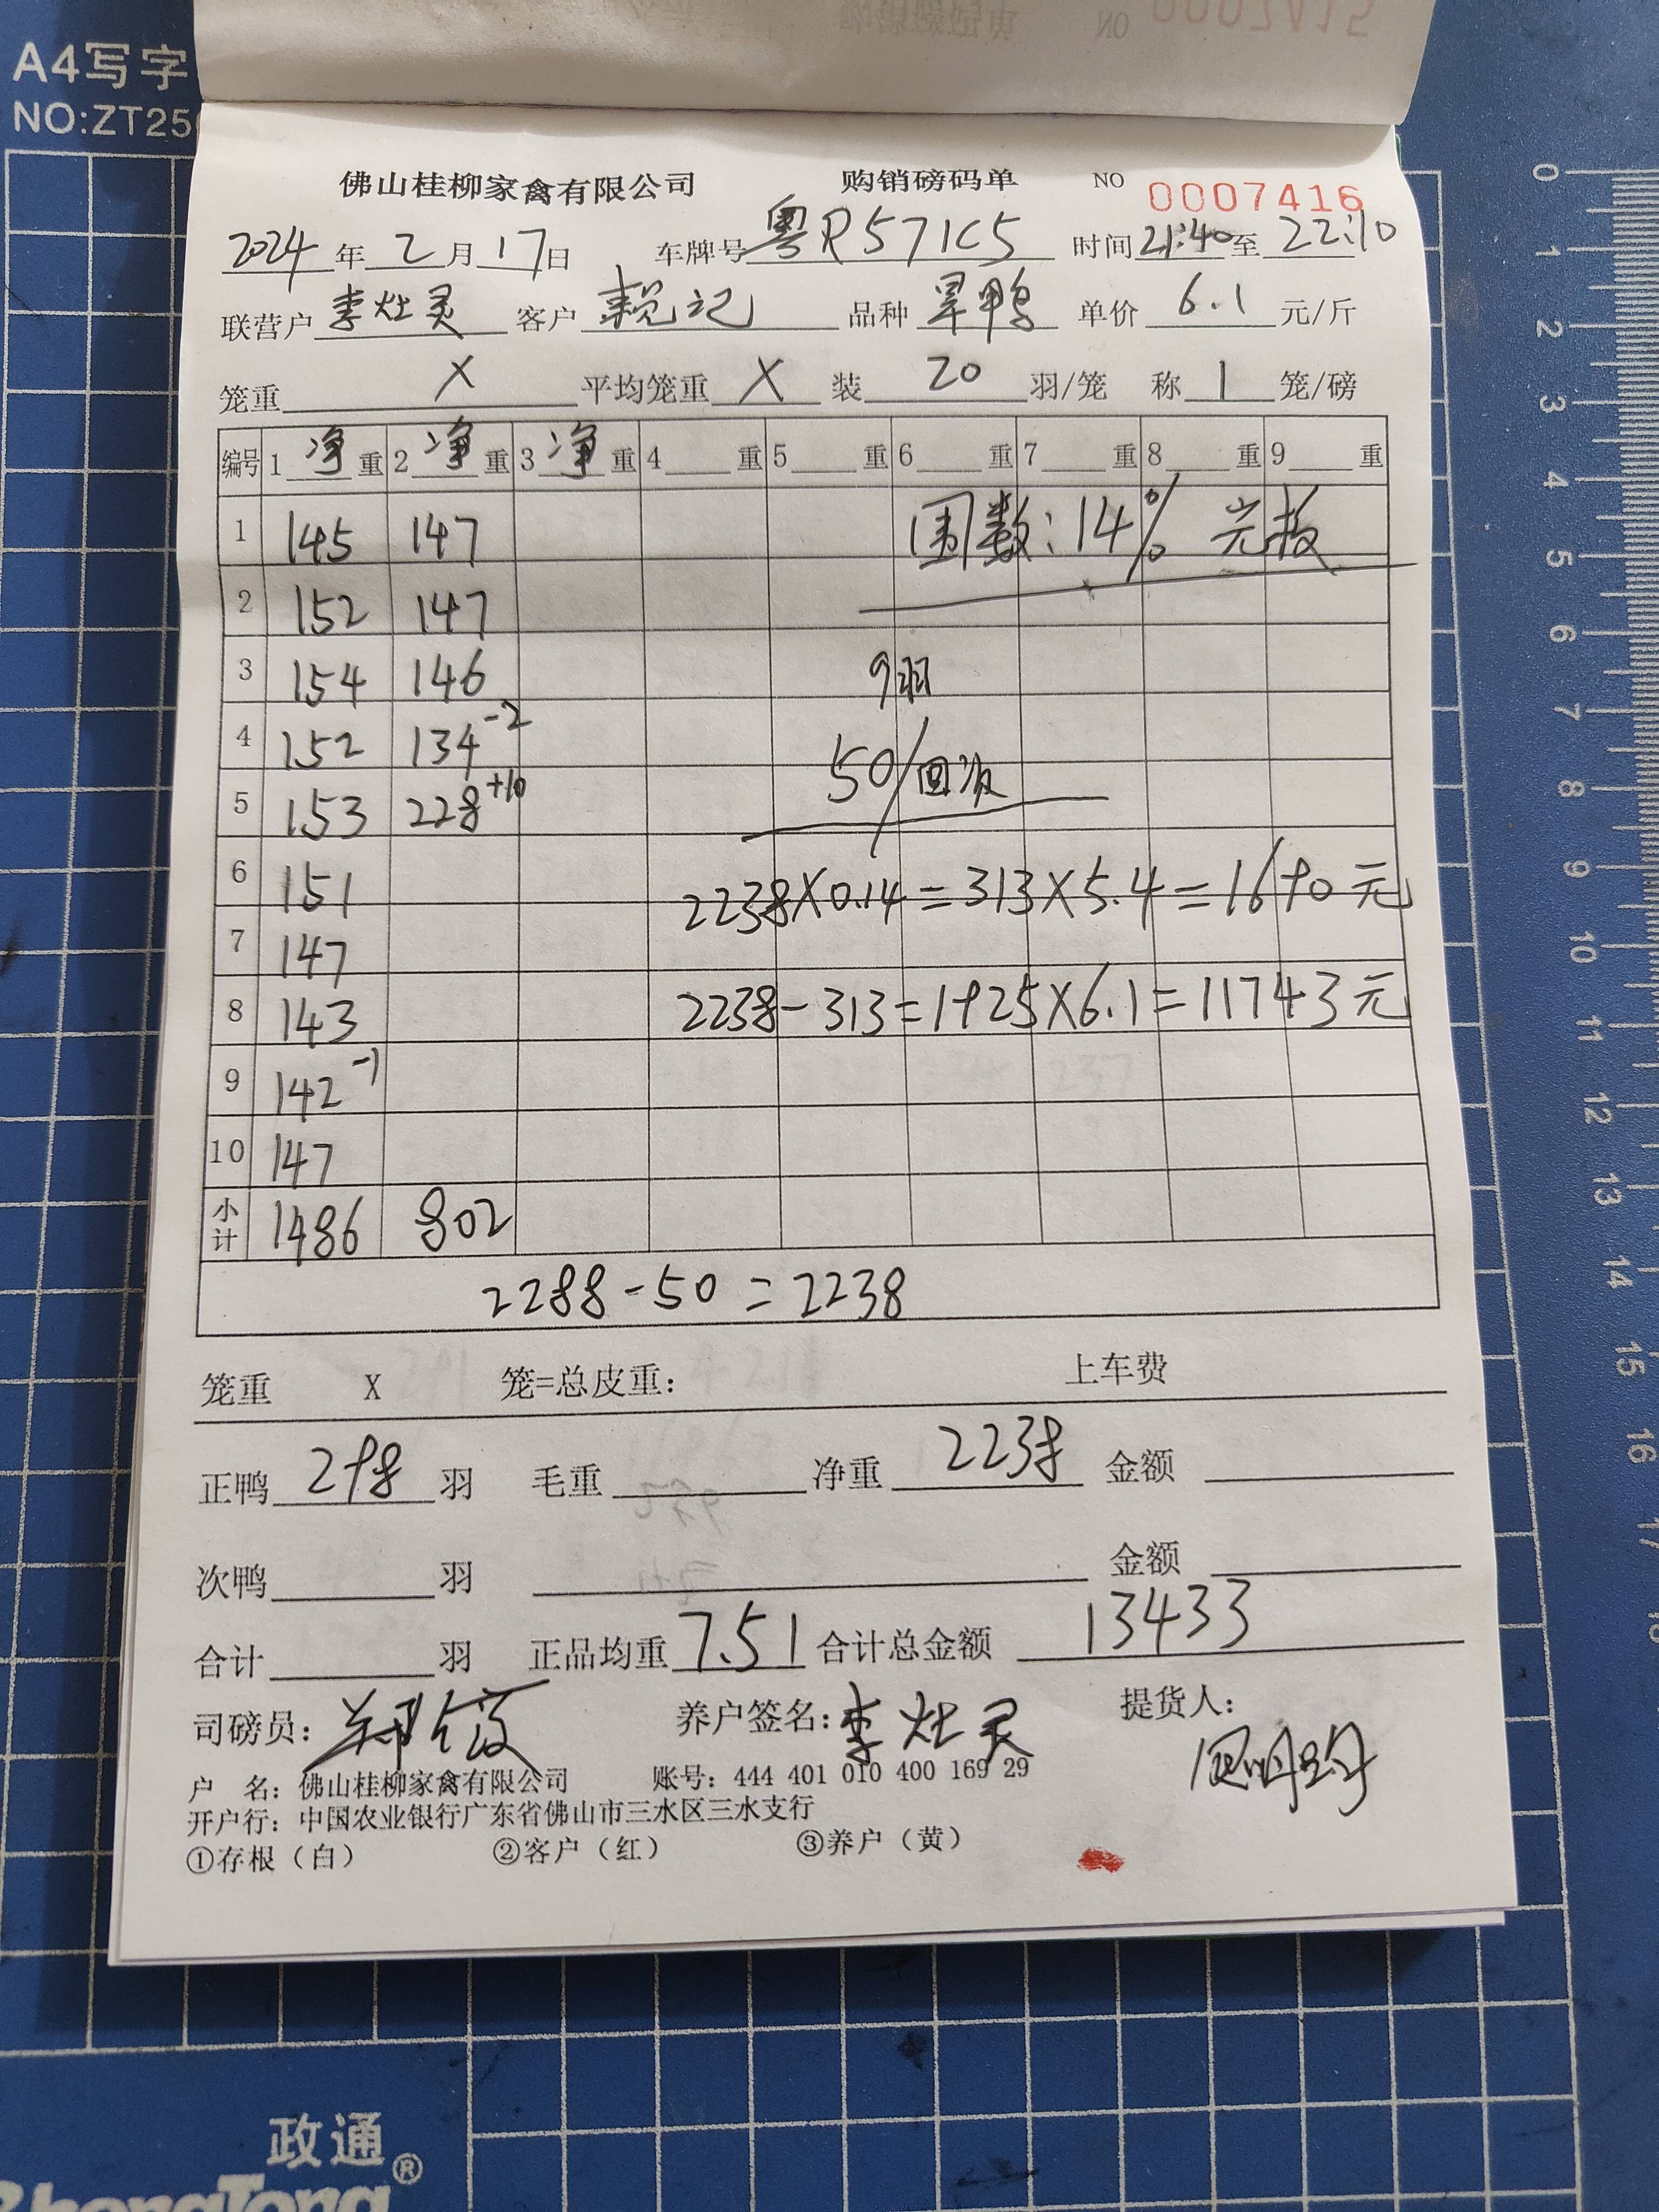 A4写字
NO:ZT25
NO 0007415
佛山桂柳家禽有限公司 购销磅码单 NO 0007416
2024年2月17日 车牌号粤R571C5 时间21:40至22:10
联营户李灶灵 客户 记 品种旱鸭 单价6.1元/斤
笼重X平均笼重X装20羽/笼 称1笼/磅
编号 1净重 2净重 3净重 4重 5重 6重 7重 8重 9重
1 145 147 围数:14%
2 152 147
3 154 146 9羽
4 152 134-2 50/回
5 153 228+10
6 151 2238X0.14=313X5.4=1690元
7 147
8 143 2238-313=1925X6.1=11743元
9 142-1
10 147
小计 1486 802
2288-50=2238
笼重 X 笼=总皮重: 上车费
正鸭298羽 毛重 净重2238 金额
次鸭 羽 金额
合计 羽 正品均重7.51合计总金额13433
司磅员: 养户签名:李灶灵 提货人:
户 名: 佛山桂柳家禽有限公司 账号: 444 401 010 400 169 29
开户行: 中国农业银行广东省佛山市三水区三水支行
①存根（白） ②客户（红） ③养户（黄）
0
1
2
3
4
5
6
7
8
9
10
11
12
13
14
15
16
政通®